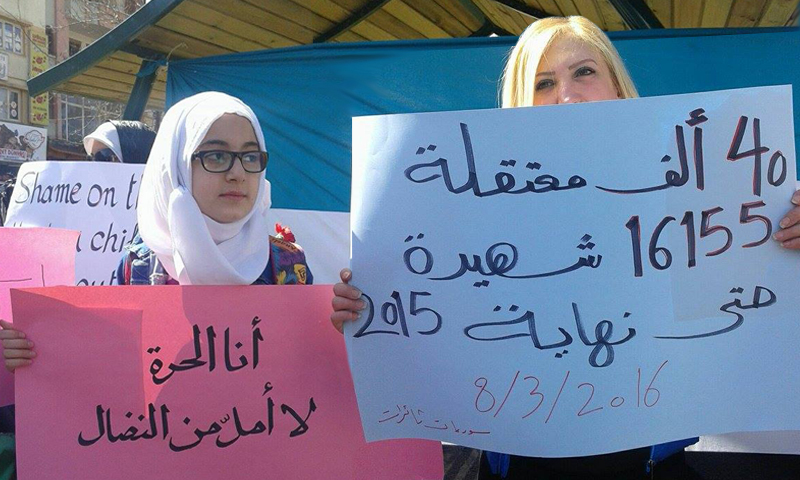 40 ألف معتقلة
16155 شهيدة
حتى نهاية 2015
8/3/2016
سوريات ثائرات
أنا الحرة
لا أملّ من النضال
Shame on th
chil
out